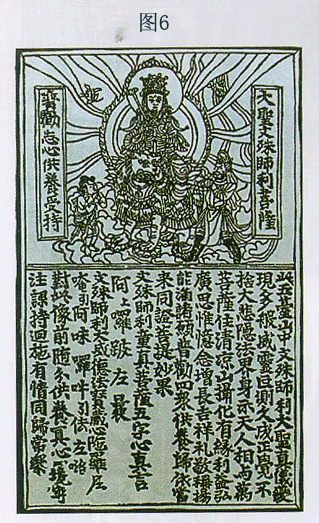 图6
大聖文殊師利菩薩
普勸志心供養受持
此五臺山中文殊師利大聖真儀變
現多般威靈叵測久成正覺不
捨大悲隱法界身示天人相与萬
菩薩住清涼山攝化有緣利益弘
廣思惟憶念增長吉祥礼敬稱揚
能滿諸願普勸四衆供養歸依當
來同證菩提妙果
文殊師利童真菩薩五字心真言
阿上囉跛左曩
文殊師利大威德法寳藏心陁羅尼
引阿味囉引佉左
對此像前随分供養冥心一境專
注課持迴施有情同歸常樂